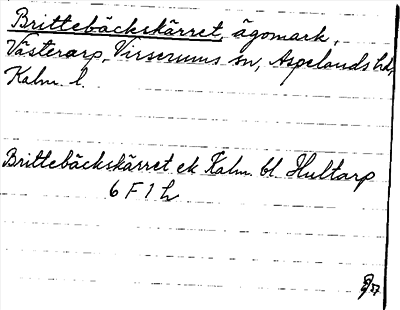 Brittebäckskärret, ägomark,
Västerarp, Virserums sn, Aspelands hd,
Kalm. l.
Brittebäckskärret ek Kalm. bl. Hultarp
6 F 1 h